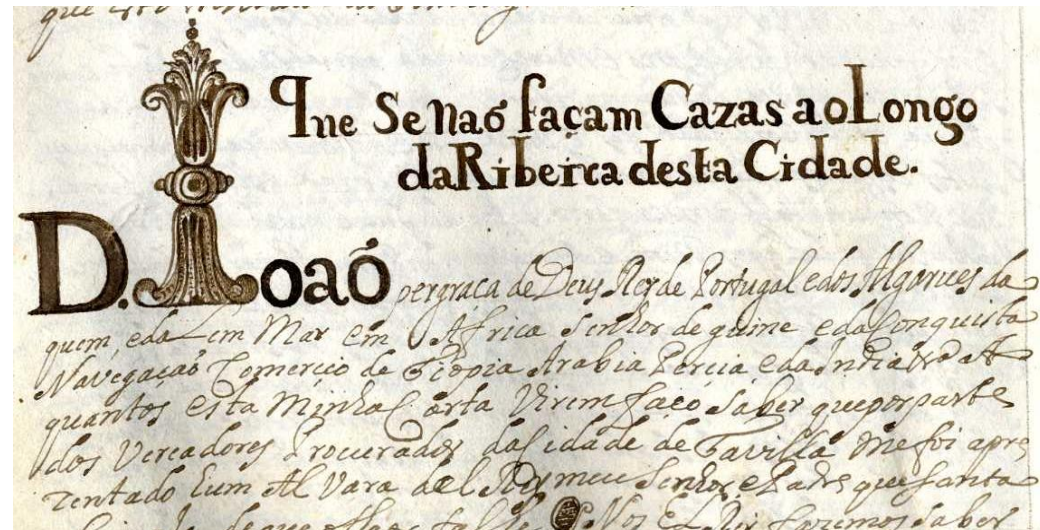 que
Que Se Naõ façam Cazas ao Longo
da Ribeira desta Cidade.
D. Ioaõ per graça de Deus Rey de Portugal e dos Algarues da
quem, e da Lem Mar em Africa Senhor de guine e da Conquista
Navegaçaõ Comerçio de Etiopia Arabia Percia e da India &
quantos esta Minha Carta Virem faço saber que por parte
dos Vereadores Procurador da Cidade de Tavilla me foi apre
zentado hum Al Vara del Rey meu Senhor e Padre que Santa
de que tal he Nos El Rey fazemos saber